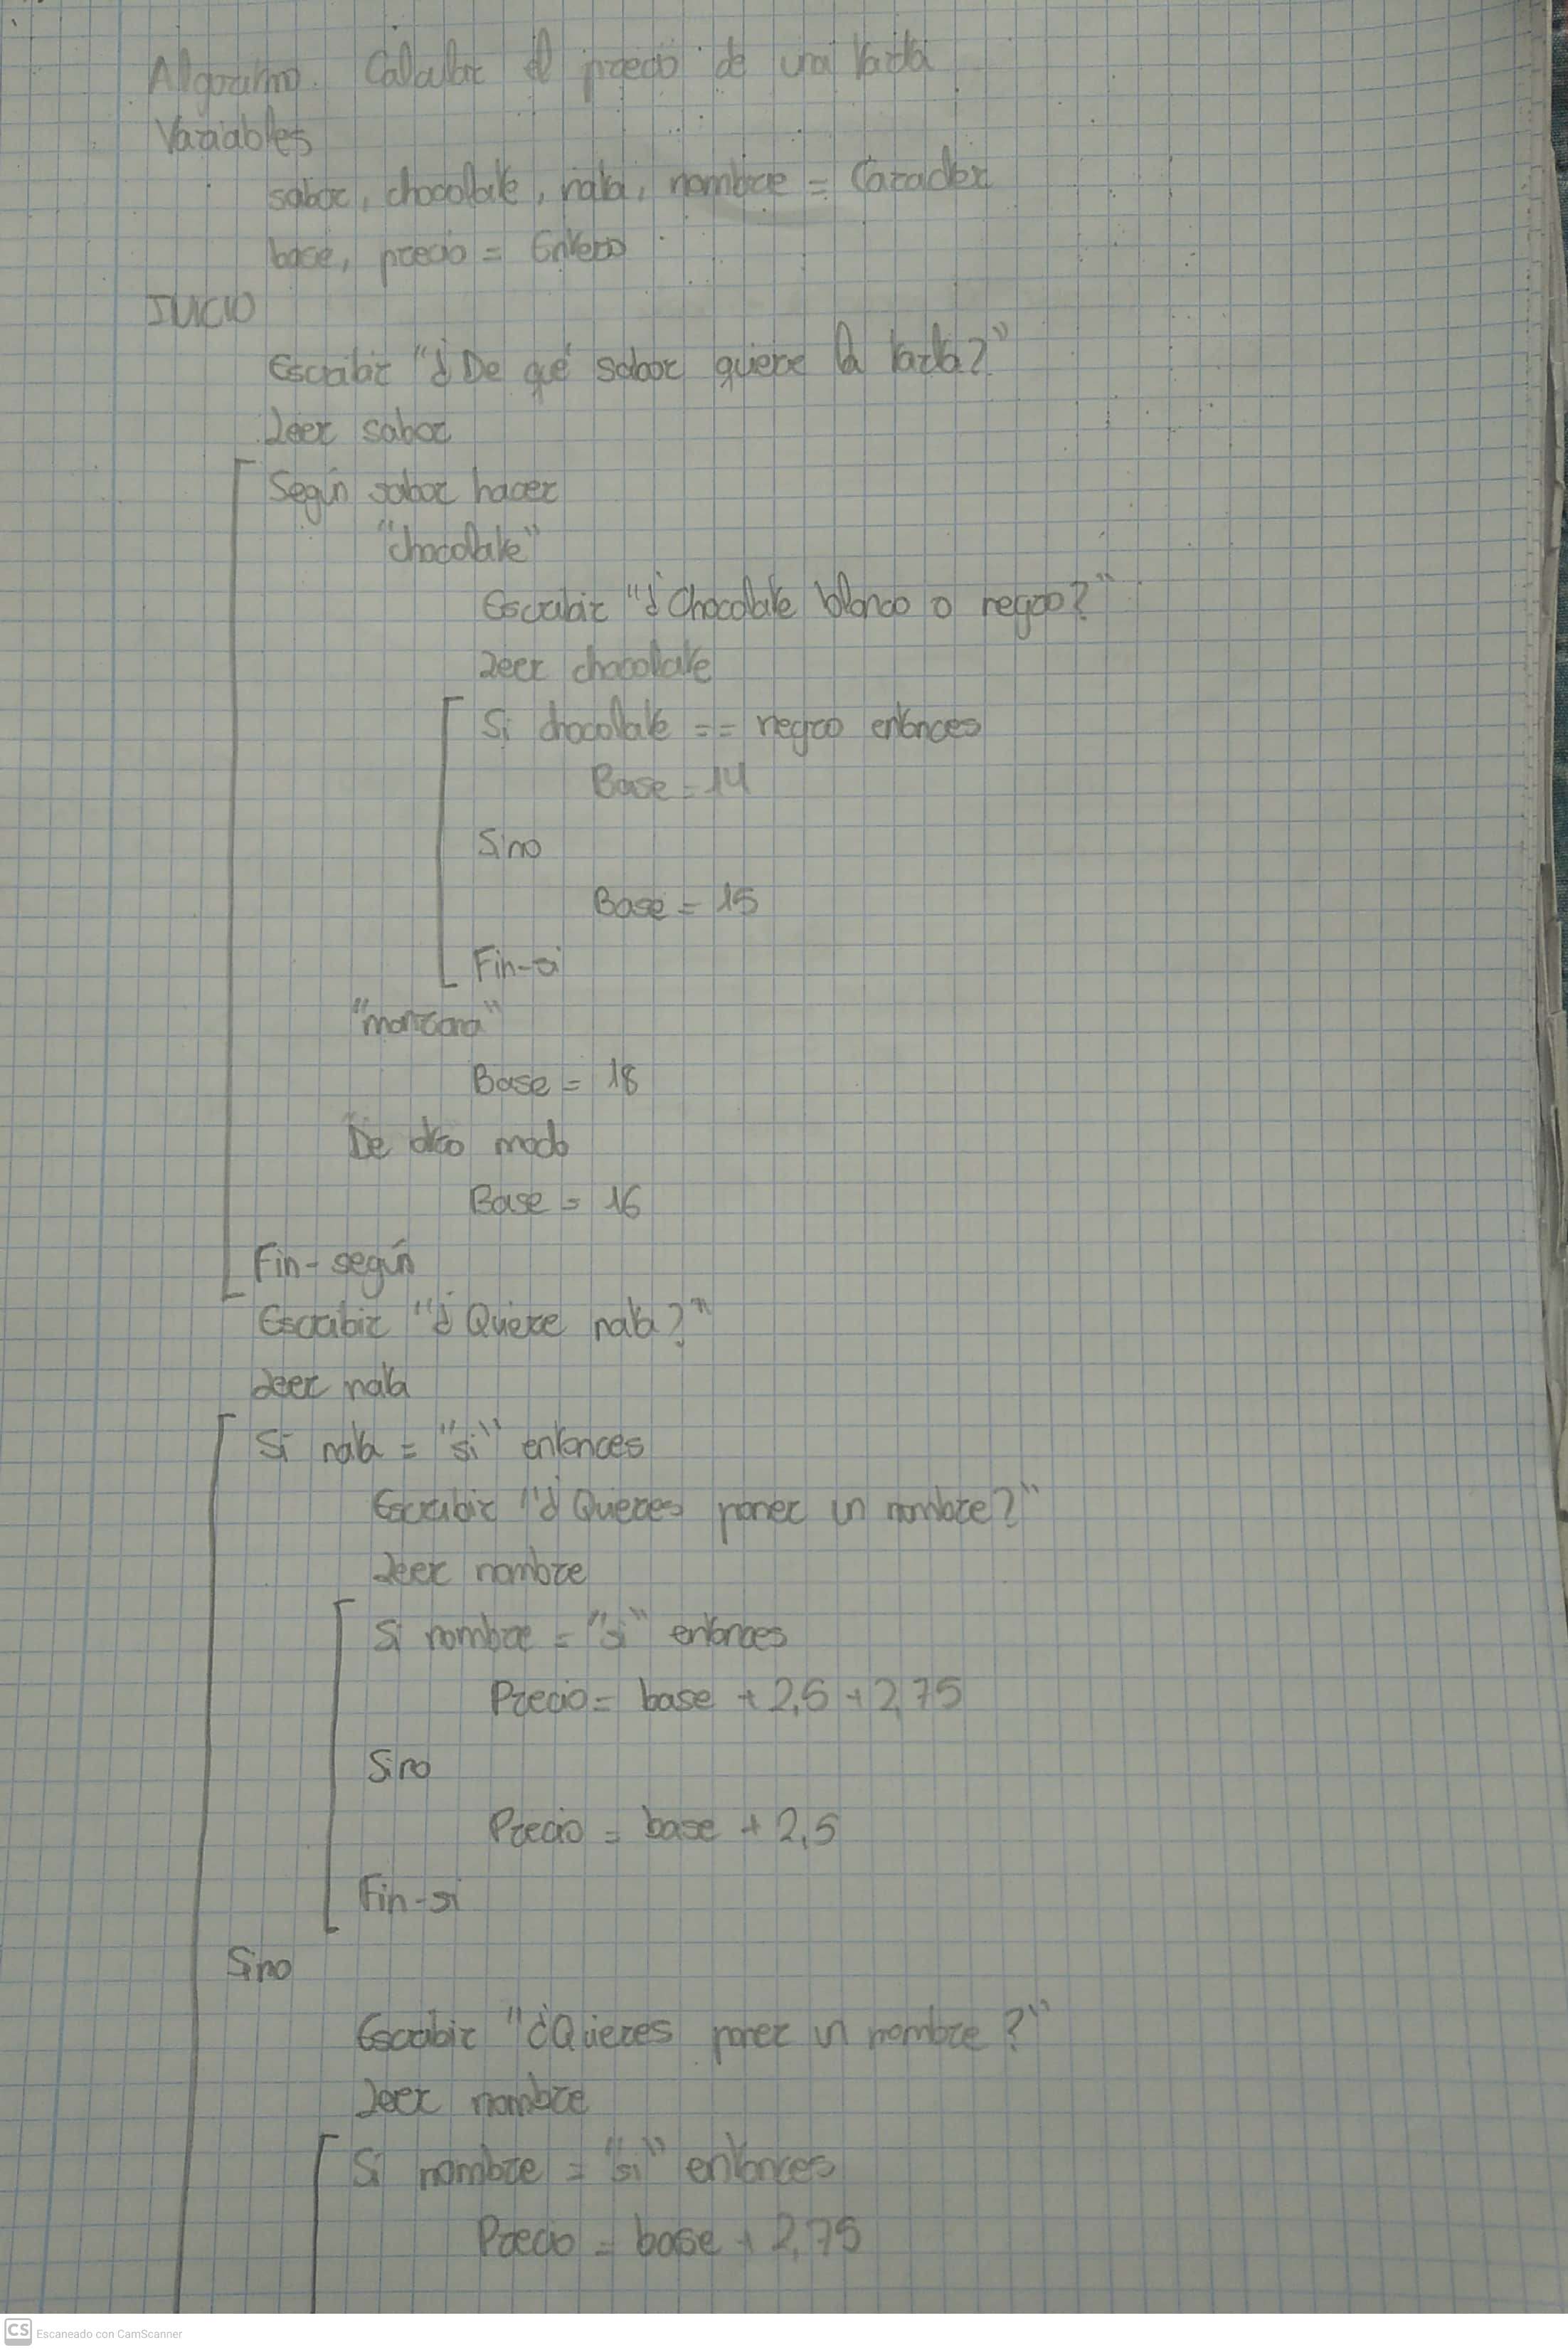 Algoritmo. Calcular el precio de una tarta
Variables
sabor, chocolate, nata, nombre = Caracter
base, precio = Entero
INICIO
Escribir "¿De qué sabor quiere la tarta?"
Leer sabor
Según sabor hacer
"chocolate"
Escribir "¿Chocolate blanco o negro?"
Leer chocolate
Si chocolate == negro entonces
Base = 14
Sino
Base = 15
Fin-si
"manzana"
Base = 18
De otro modo
Base = 16
Fin-según
Escribir "¿Quiere nata?"
Leer nata
Si nata = "si" entonces
Escribir "¿Quieres poner un nombre?"
Leer nombre
Si nombre = "si" entonces
Precio = base + 2,5 + 2,75
Sino
Precio = base + 2,5
Fin-si
Sino
Escribir "¿Quieres poner un nombre?"
Leer nombre
Si nombre = "si" entonces
Precio = base + 2,75
CS Escaneado con CamScanner